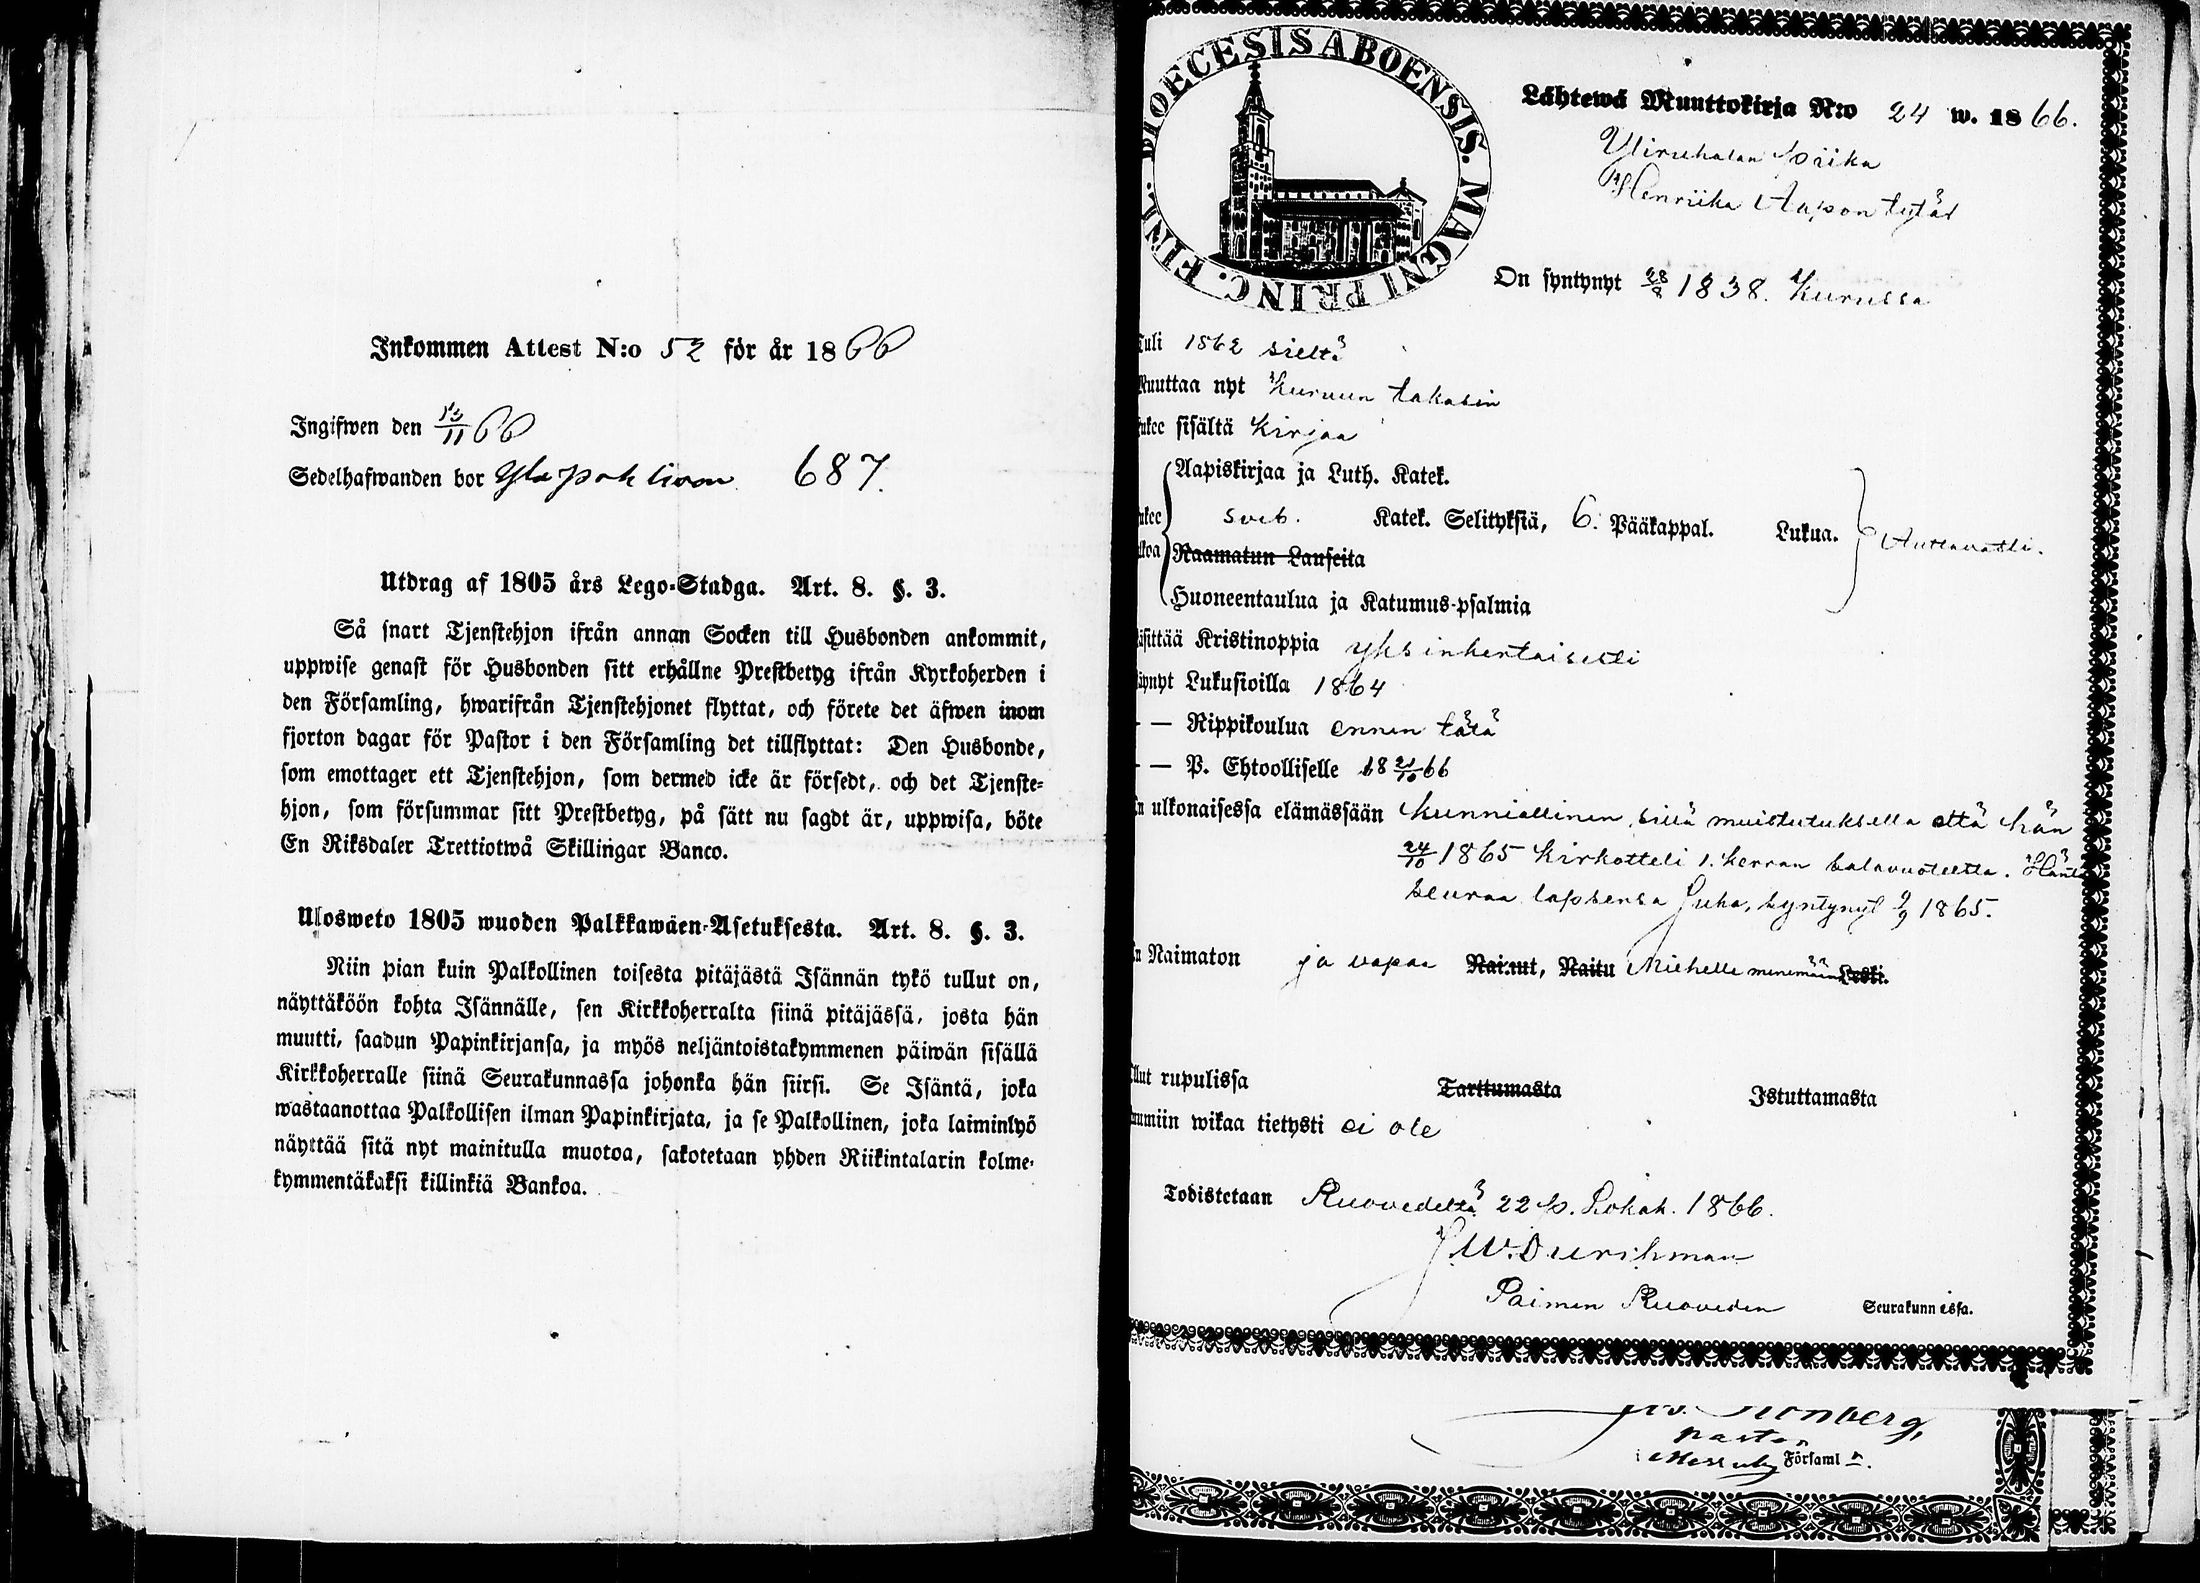 Inkommen Attest N:o 52 för år 1866
Ingifwen den 13/11 66
Sedelhafwanden bor 687.
Utdrag af 1805 års Lego-Stadga. Art. 8. §. 3.
Så snart Tjenstehjon ifrån annan Socken till Husbonden ankommit,
uppwise genast för Husbonden sitt erhållne Prestbetyg ifrån Kyrkoherden i
den Församling, hwarifrån Tjenstehjonet flyttat, och förete det äfwen inom
fjorton dagar för Pastor i den Församling det tillflyttat: Den Husbonde,
som emottager ett Tjenstehjon, som dermed icke är försedt, och det Tjenste-
hjon, som försummar sitt Prestbetyg, på sätt nu sagdt är, uppwisa, böte
En Riksdaler Trettiotwå Skillingar Banco.
Ulosweto 1805 wuoden Palkkawäen-Asetuksesta. Art. 8. §. 3.
Niin pian kuin Palkollinen toisesta pitäjästä Isännän tykö tullut on,
näyttäköön kohta Isännälle, sen Kirkkoherralta siinä pitäjässä, josta hän
muutti, saadun Papinkirjansa, ja myös neljäntoistakymmenen päiwän sisällä
Kirkkoherralle siinä Seurakunnassa johonka hän siirsi. Se Isäntä, joka
wastaanottaa Palkollisen ilman Papinkirjata, ja se Palkollinen, joka laiminlyö
näyttää sitä nyt mainitulla muotoa, sakotetaan yhden Riikintalarin kolme-
kymmentäkaksi killinkiä Bankoa.
DIOECESIS ABOENSIS. MAGNI PRINC. FINL.
Lähtewä Muuttokirja N:o 24 w. 1866.
piika
Henriika Aapon tytär
On syntynyt 28/8 1838. Kurussa
Tuli 1862 sieltä
Muuttaa nyt Kuruun takasin
ukee sisältä Kirjaa
Aapiskirjaa ja Luth. Katek.
ukee Sveb. Katek. Selityksiä, 6. Pääkappal. Lukua. Auttavasti.
lkoa Raamatun Lauseita
Huoneentaulua ja Katumus-psalmia
äsittää Kristinoppia yksinkertaisesti
äynyt Lukusioilla 1864
— Rippikoulua ennen tätä
— P. Ehtoolliselle 18 21/10 66
n ulkonaisessa elämässään kunniallinen, sillä muistutuksella että hän
24/10 1865 Kirkotteli 1. kerran salavuoteetta. Hänt
seuraa lapsensa Juha, syntynyt 9/9 1865.
n Naimaton ja vapaa Nainut, Naitu Miehelle menemään Leski.
llut rupulissa Tarttumasta Istuttamasta
umiin wikaa tietysti ei ole
Todistetaan Ruovedeltä 22 p. Lokak. 1866.
J. W. Durchman
Paimen Ruoveden Seurakunnissa.
pastor
i Församl n.